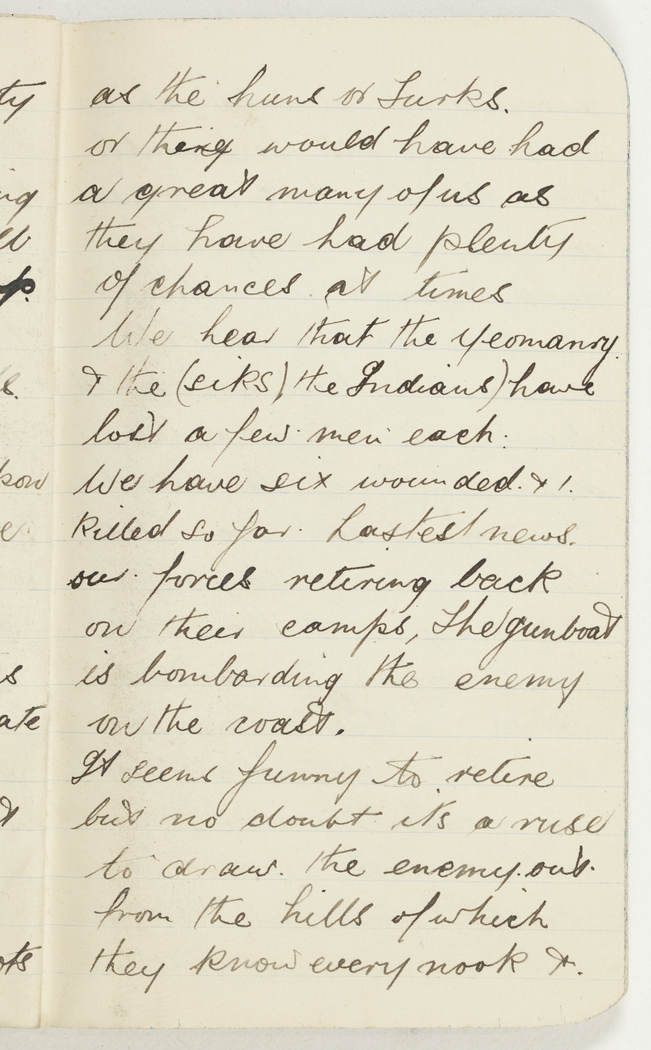 as the huns or Turks.
or they would have had
a great many of us as
they have had plenty
of chances at times
We hear that the Yeomanry
& the (siks) the Indians) have
lost a few men each.
We have six wounded. & 1.
killed so far. Lastest news.
our forces retiring back
on their camps, The gunboat
is bombarding the enemy
on the coast.
It seems funny to retire
but no doubt it's a ruse
to draw. the enemy. out.
from the hills of which
they know every nook &.